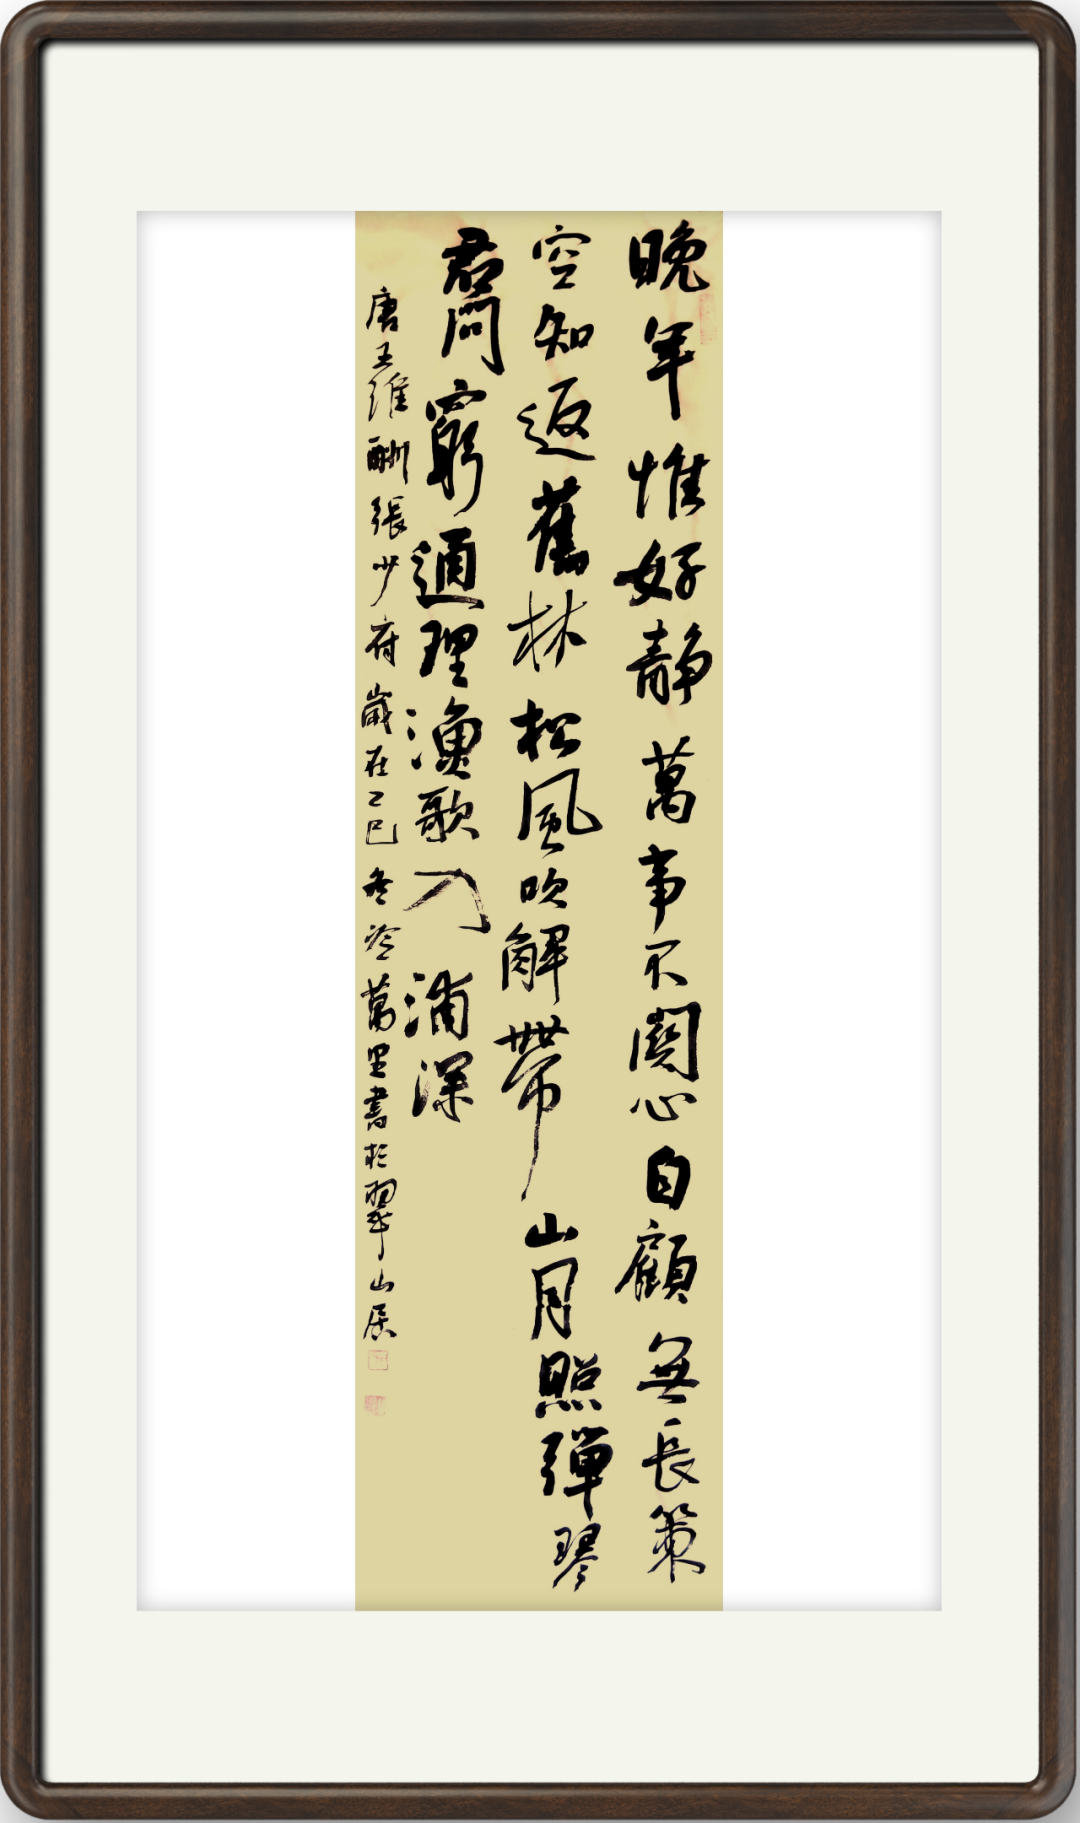 晚年惟好静萬事不関心自顧無長策
空知返舊林松風吹解帶山月照彈琴
君問窮通理漁歌入浦深
唐王維酬張少府歲在乙巳冬冷萬里書於翠山居